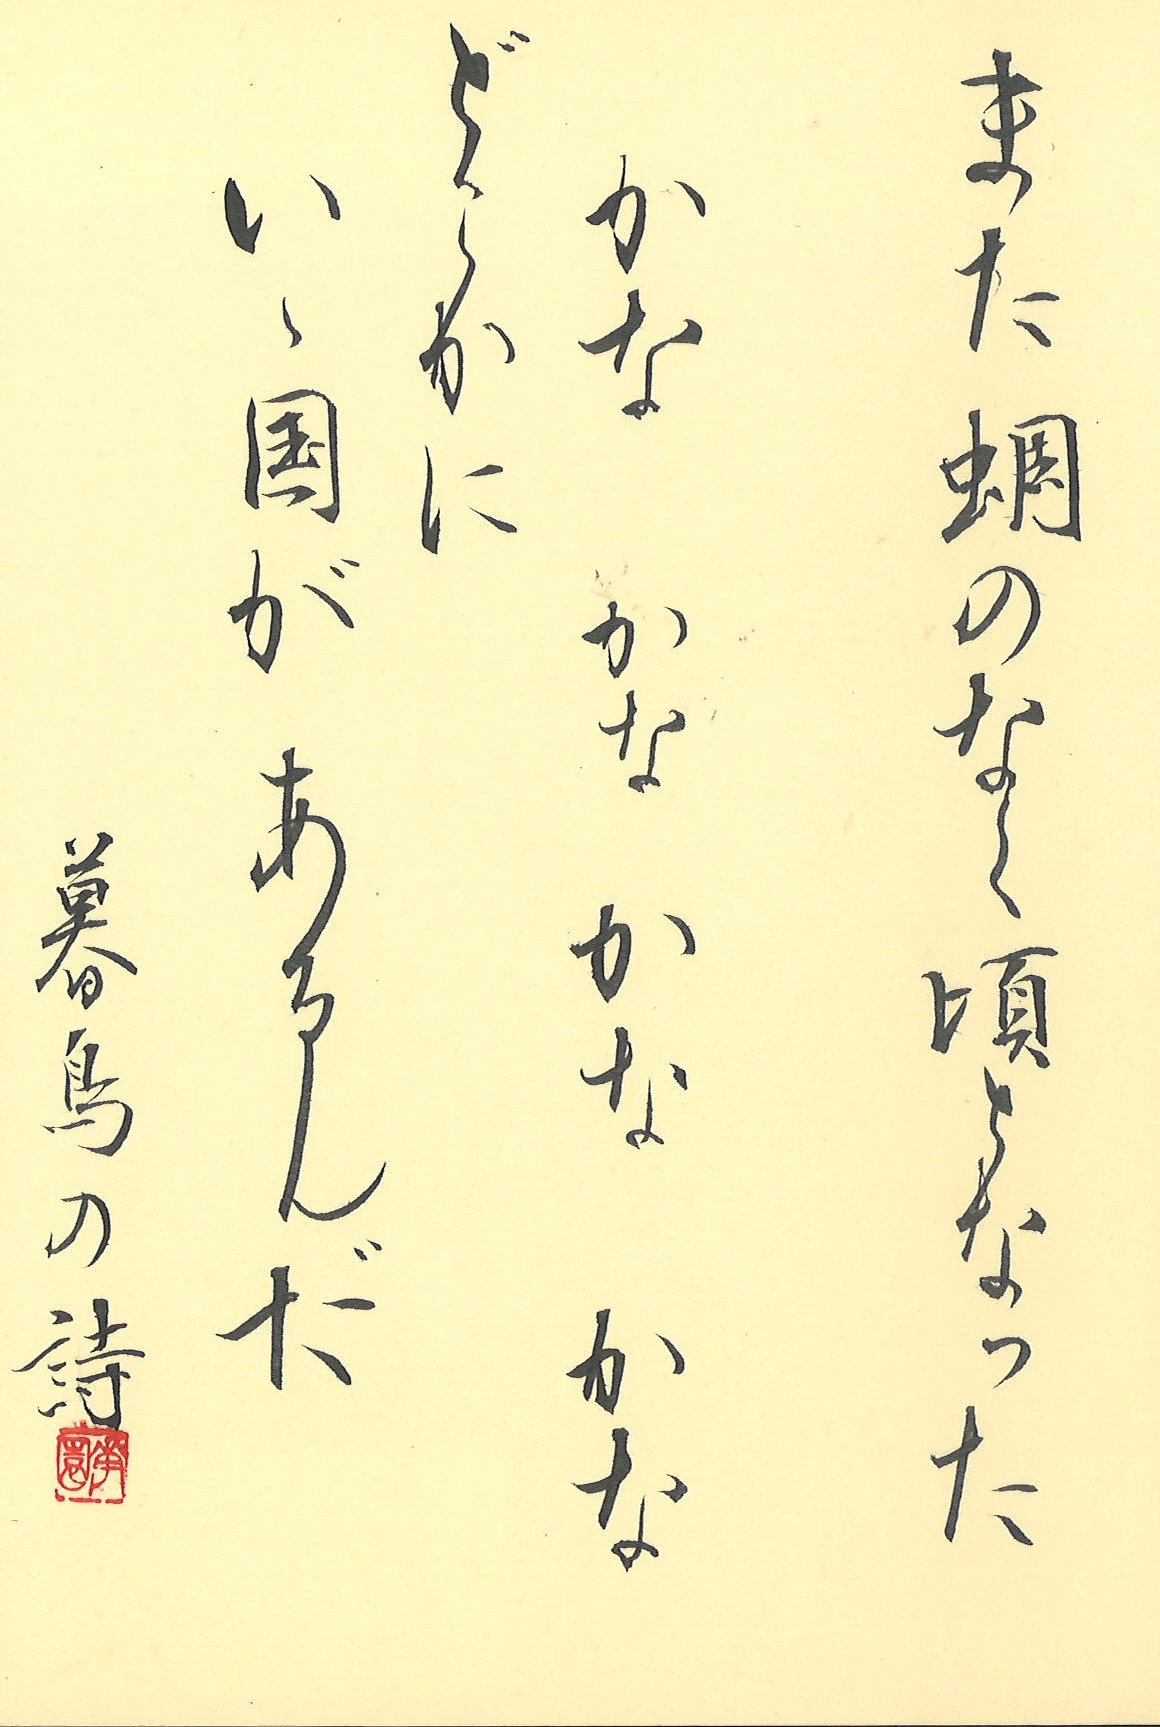 また蜩のなく頃となった
かな かな かな かな
どこかに
いゝ国が あるんだ
暮鳥の詩